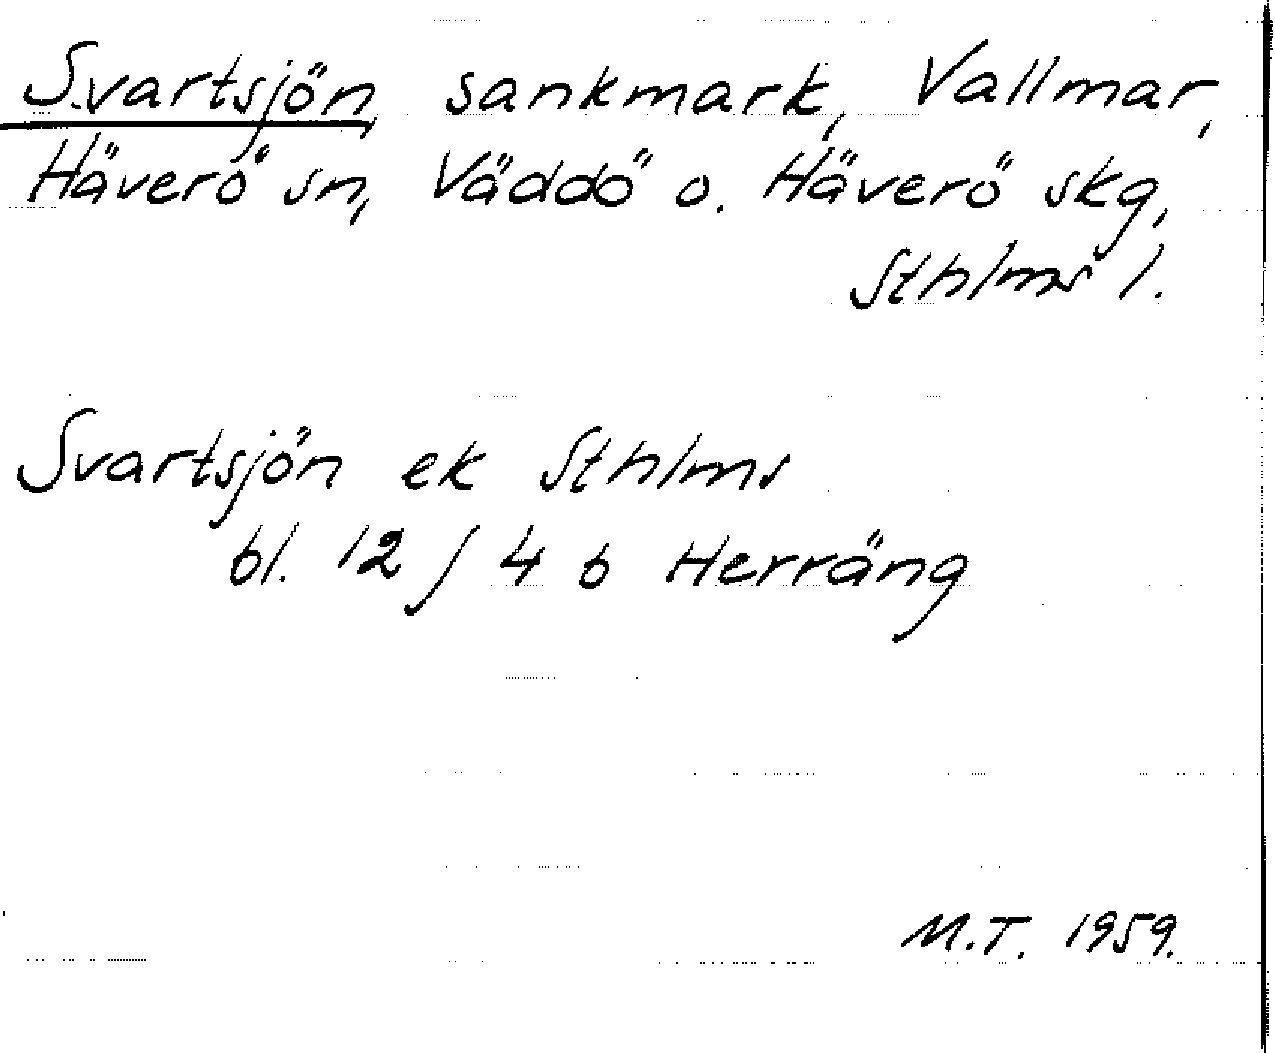 Svartsjön, sankmark, Vallmar,
Häverö sn, Väddö o. Häverö skg,
Sthlms l.
Svartsjön ek Sthlms
bl. 12 / 4 b Herräng
M.T. 1959.